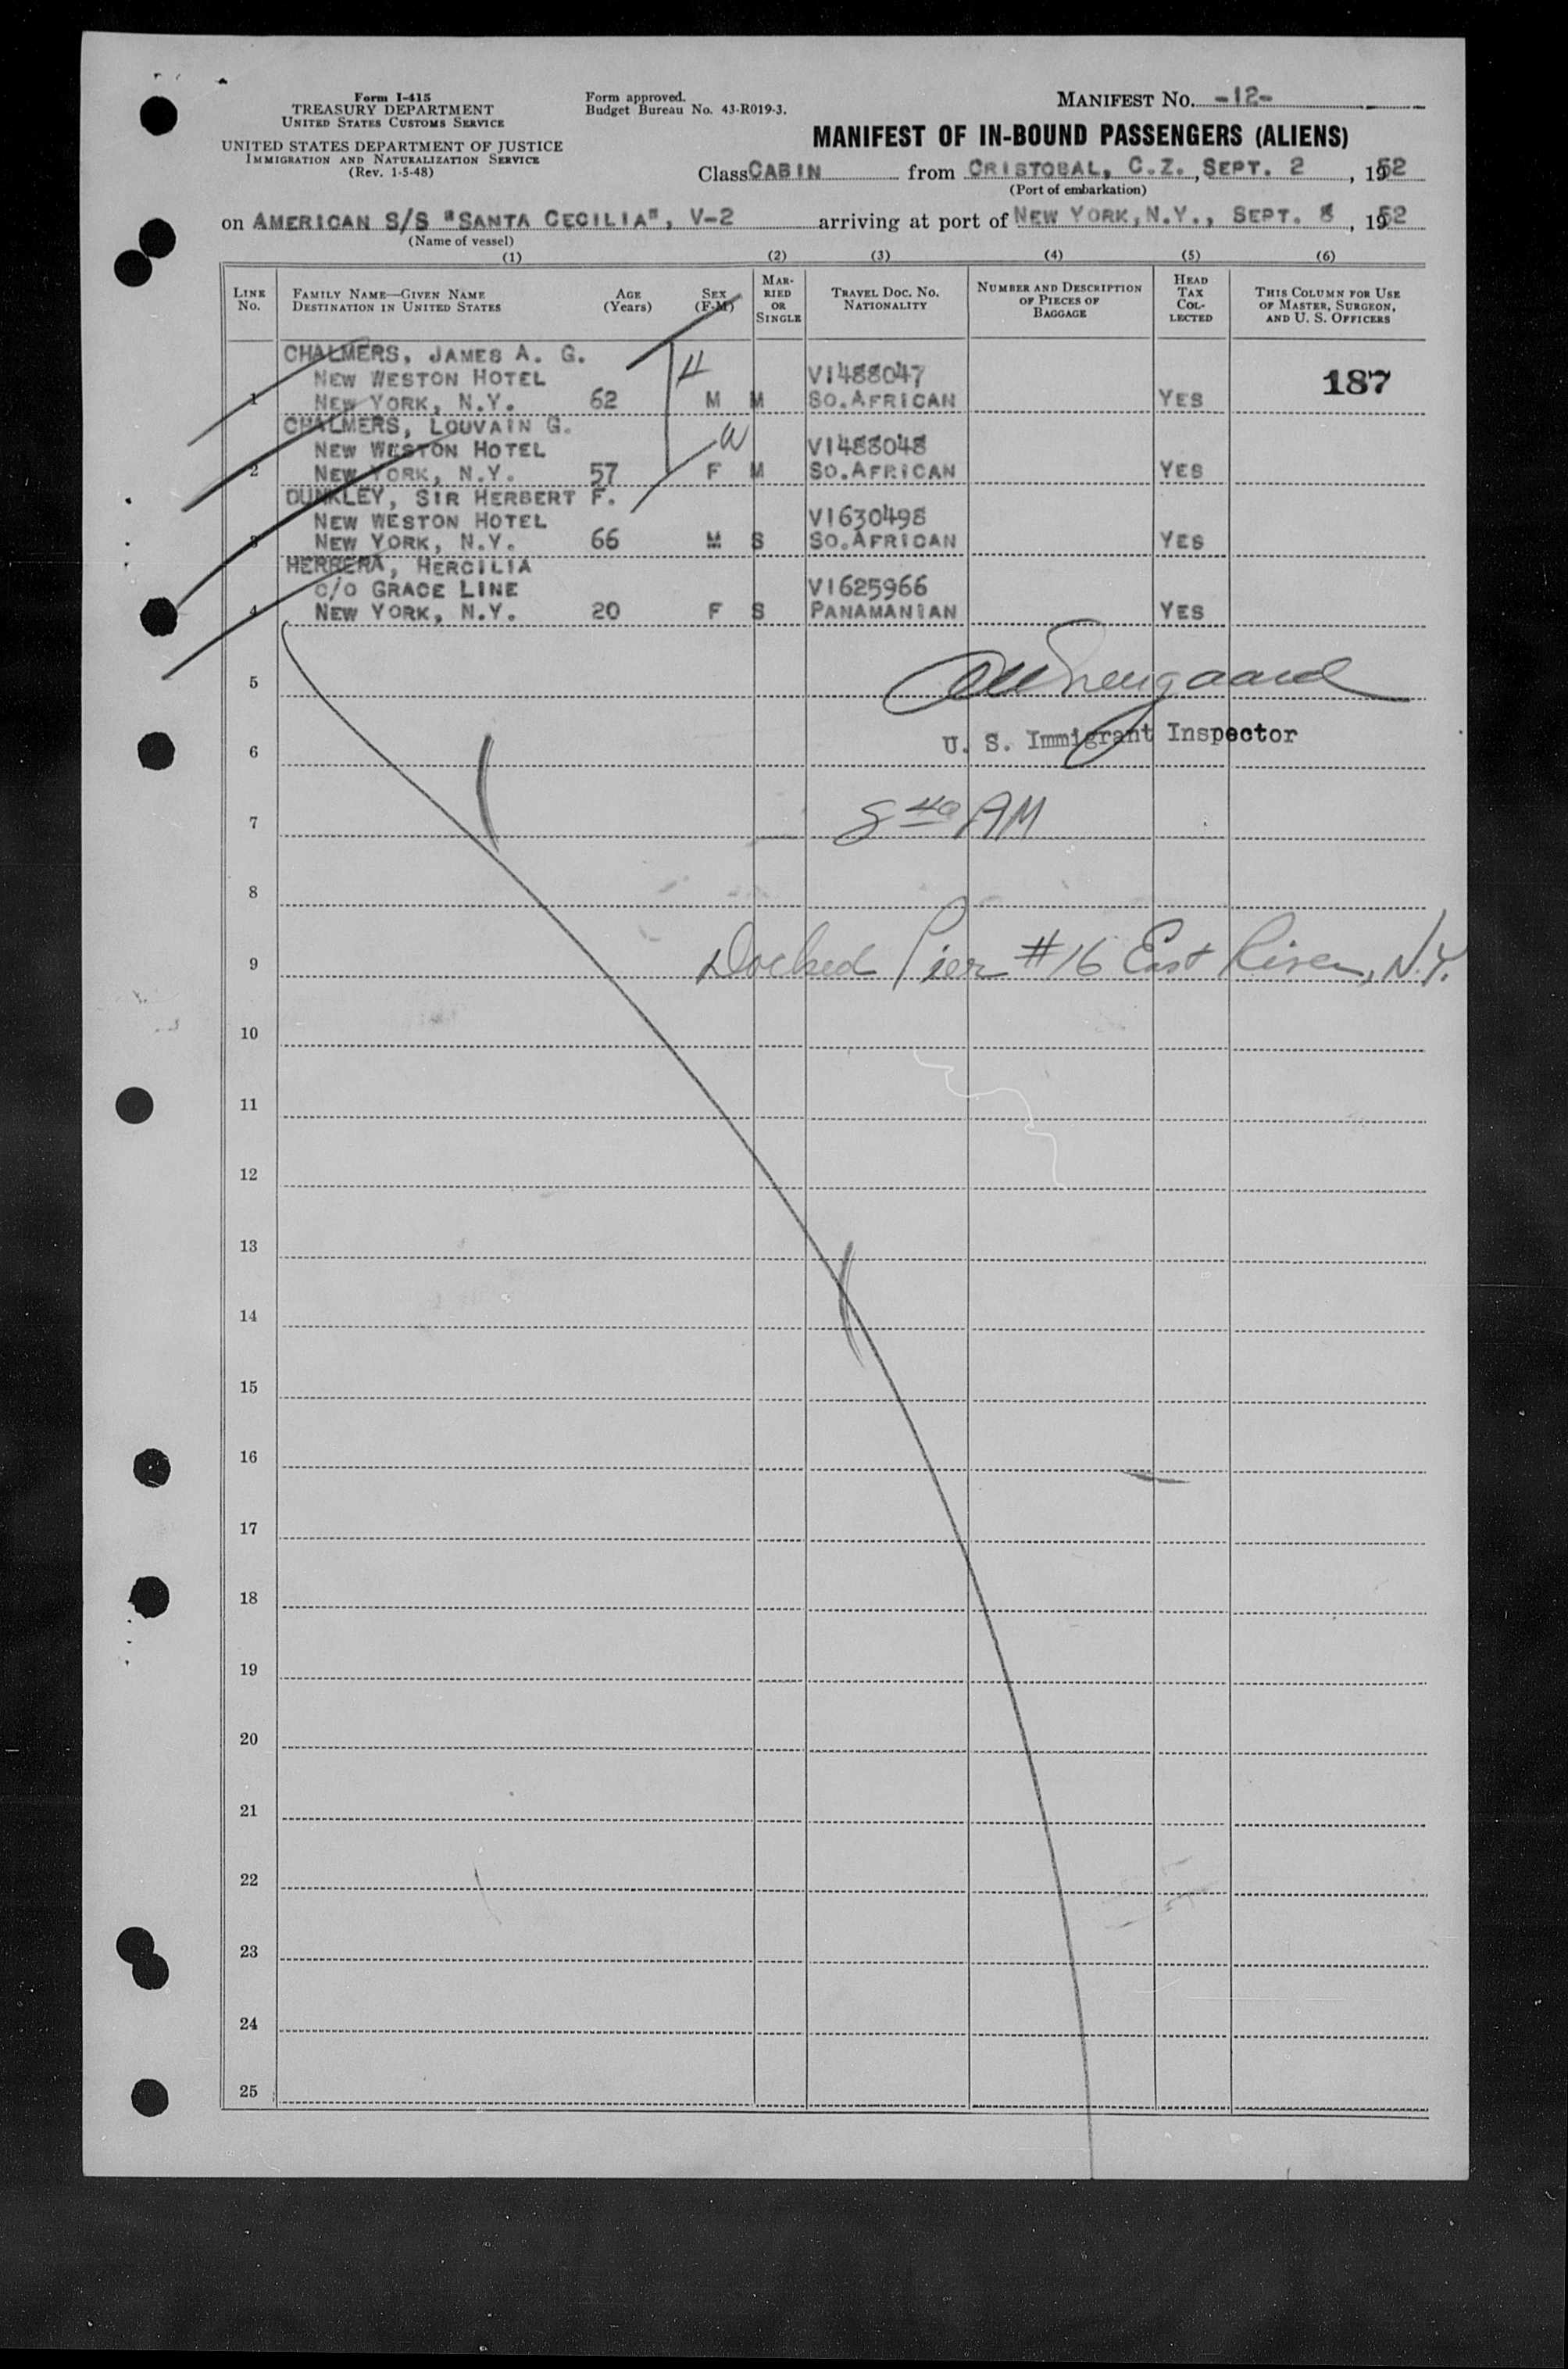 Form I-415
TREASURY DEPARTMENT
UNITED STATES CUSTOMS SERVICE
UNITED STATES DEPARTMENT OF JUSTICE
IMMIGRATION AND NATURALIZATION SERVICE
(Rev. 1-5-48)
Form approved.
Budget Bureau No. 43-R019-3.
MANIFEST NO. -12-
MANIFEST OF IN-BOUND PASSENGERS (ALIENS)
Class CABIN from CRISTOBAL, C.Z., SEPT. 2, 1952
(Port of embarkation)
on AMERICAN S/S "SANTA CECILIA", V-2 arriving at port of NEW YORK, N.Y., SEPT. 8, 1952
(Name of vessel)
(1) (2) (3) (4) (5) (6)
LINE NO. FAMILY NAME—GIVEN NAME DESTINATION IN UNITED STATES AGE (Years) SEX (F-M) MARRIED OR SINGLE TRAVEL DOC. NO. NATIONALITY NUMBER AND DESCRIPTION OF PIECES OF BAGGAGE HEAD TAX COLLECTED THIS COLUMN FOR USE OF MASTER, SURGEON, AND U. S. OFFICERS
CHALMERS, JAMES A. G. H
NEW WESTON HOTEL V1488047 187
1 NEW YORK, N.Y. 62 M M SO.AFRICAN YES
CHALMERS, LOUVAIN G. W
NEW WESTON HOTEL V1488048
2 NEW YORK, N.Y. 57 F M SO.AFRICAN YES
DUNKLEY, SIR HERBERT F.
NEW WESTON HOTEL V1630498
3 NEW YORK, N.Y. 66 M S SO.AFRICAN YES
HERRERA, HERCILIA
C/O GRACE LINE V1625966
4 NEW YORK, N.Y. 20 F S PANAMANIAN YES
5
U. S. Immigrant Inspector
6
7 8 40 AM
8
9 Docked Pier #16 East River, N.Y.
10
11
12
13
14
15
16
17
18
19
20
21
22
23
24
25